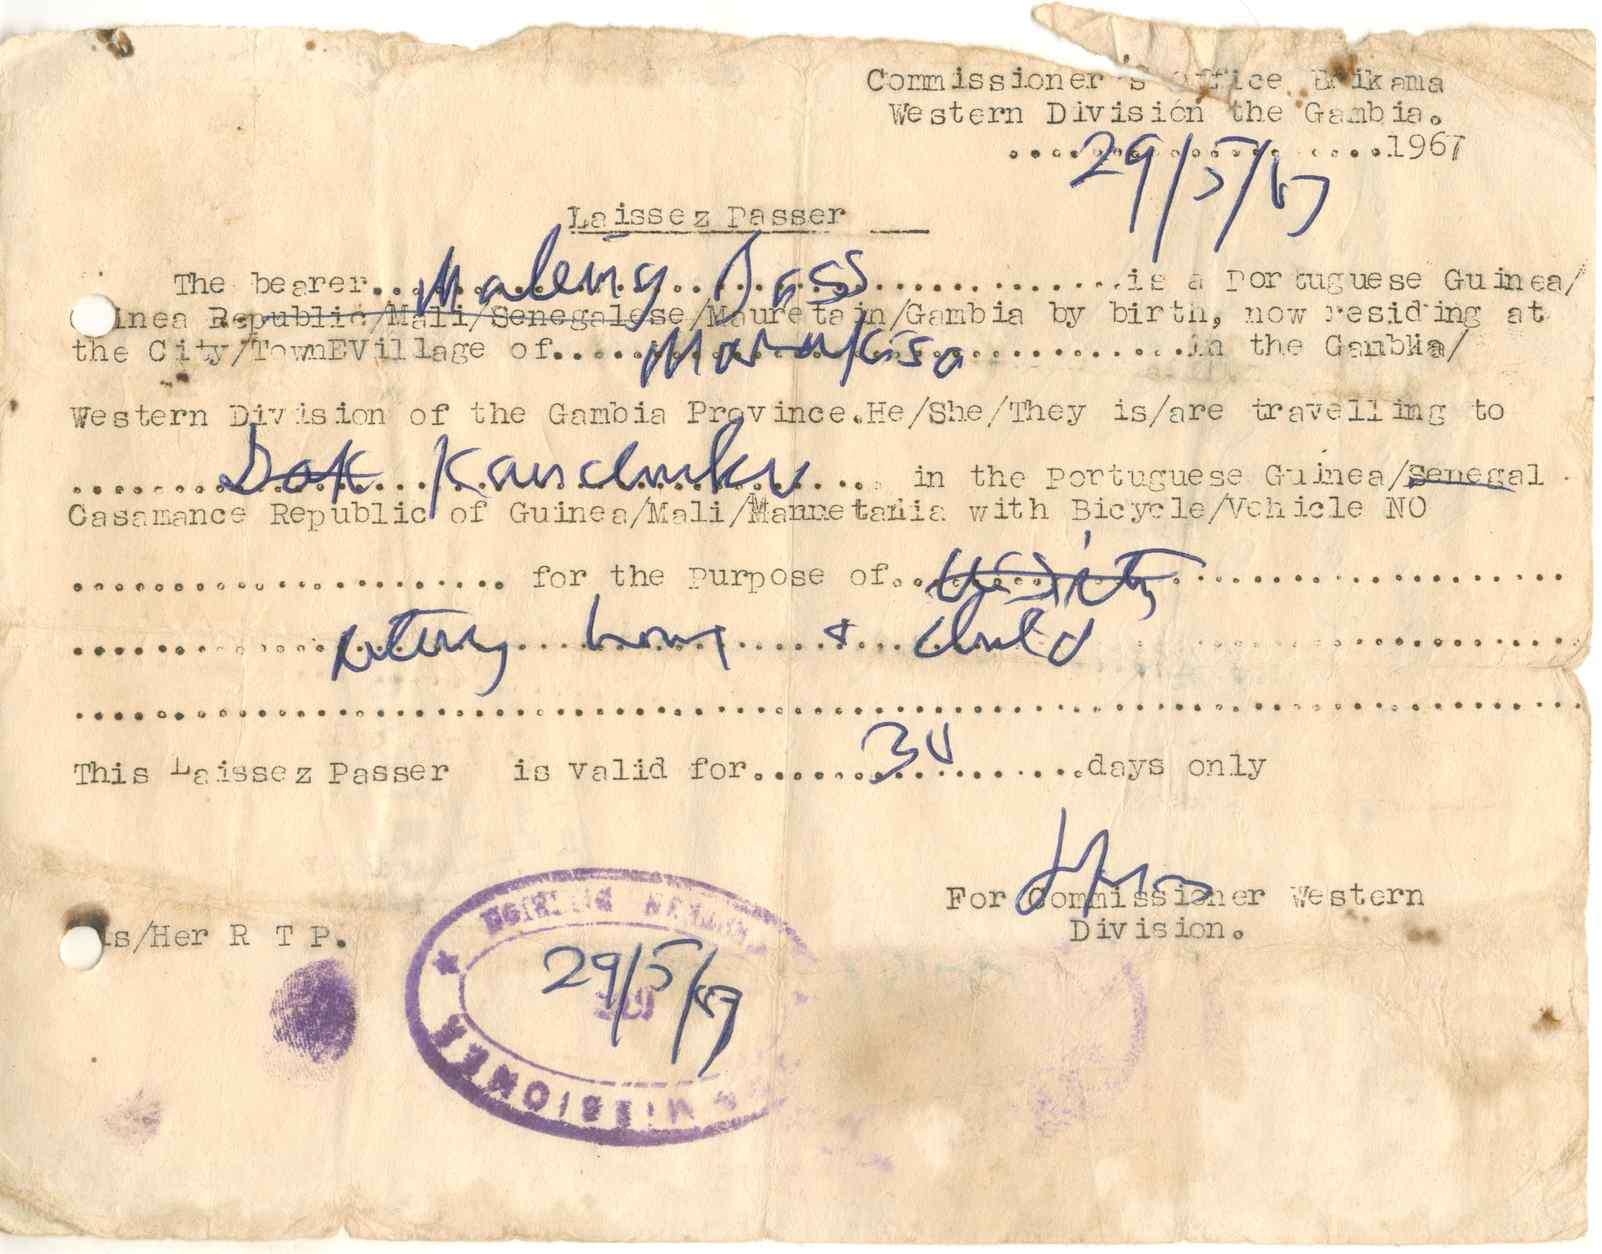 Commissioner's Office Brikama
Western Division the Gambia.
....................1967
29/5/67
Laissez Passer
The bearer....Maleng Bass....is a Portuguese Guinea/
Guinea Republic/Mali/Senegalese/Mauretain/Gambia by birth, now residing at
the City/TownEVillage of.... ....in the Gambia/
Western Division of the Gambia Province.He/She/They is/are travelling to
.... .... in the Portuguese Guinea/Senegal
Casamance Republic of Guinea/Mali/Mannetania with Bicycle/Vehicle NO
.................... for the purpose of....
.... home & child
This Laissez Passer is valid for....30....days only
For Commissioner Western
Division.
His/Her R T P.
29/5/67
COMMISSIONER WESTERN DIVISION